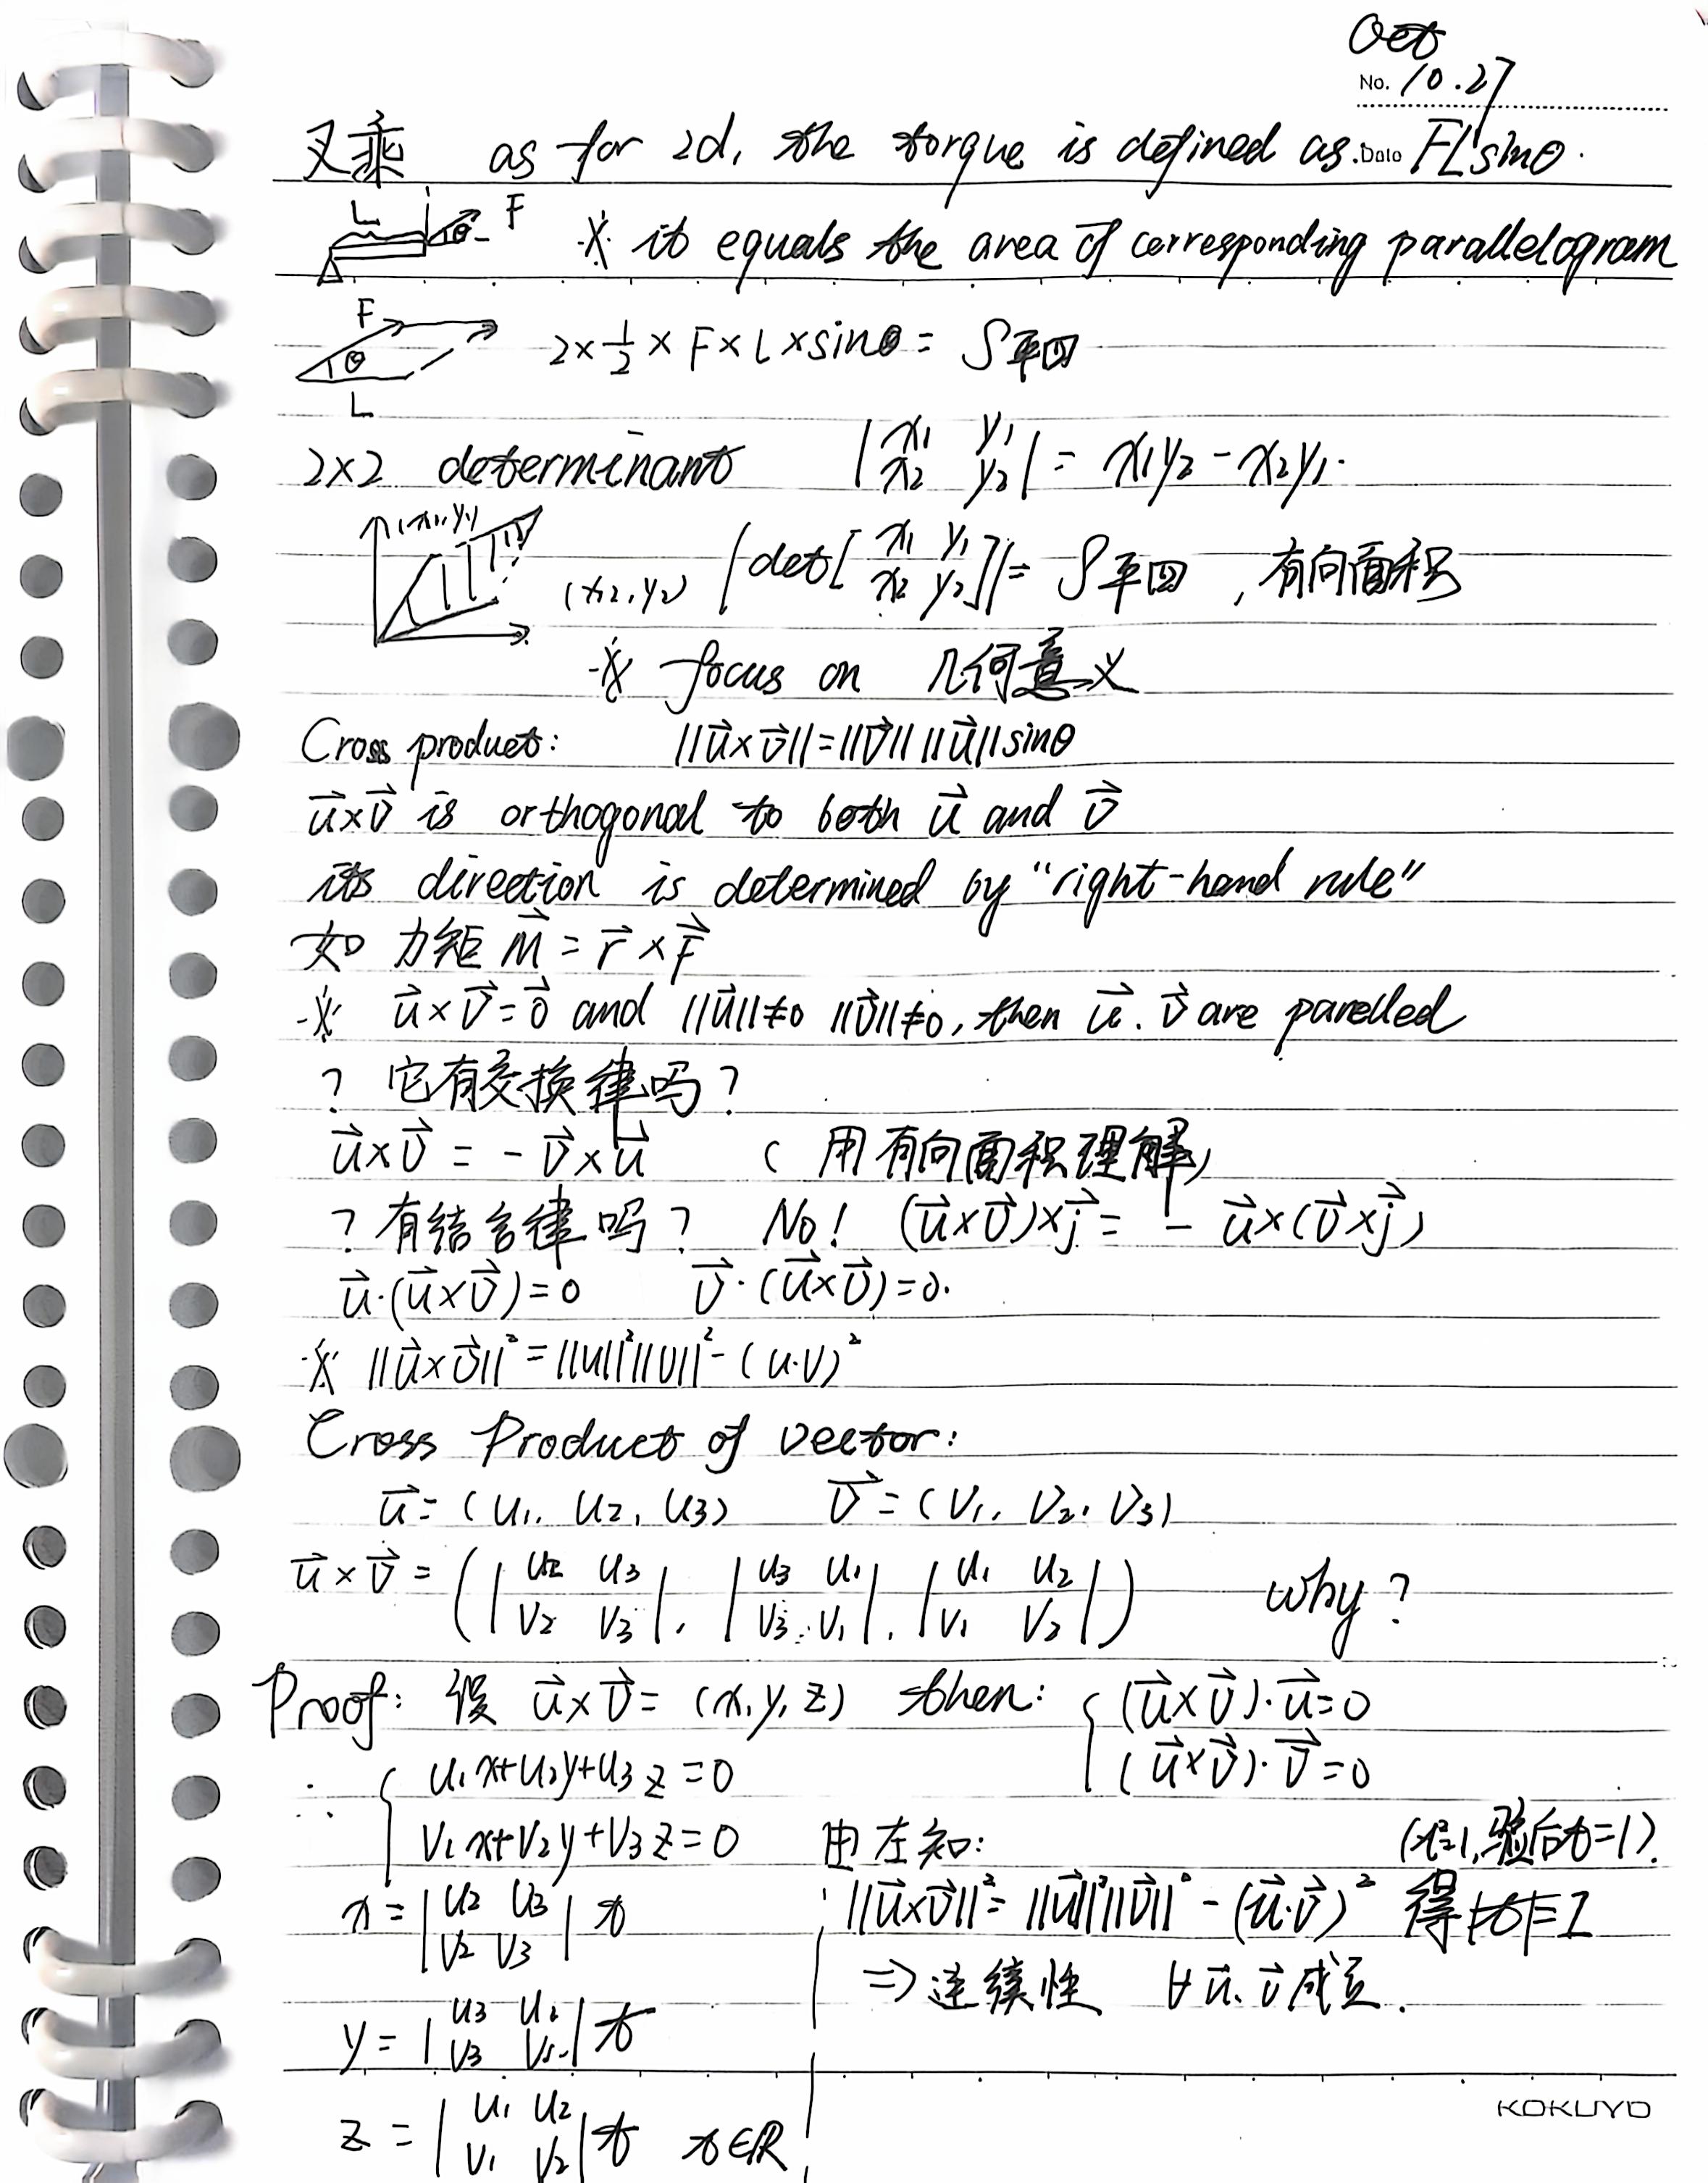 Oct
No. 10.27
叉乘 as for 2d, the torque is defined as. Date FLsinθ.
L θ F ※ it equals the area of corresponding parallelogram
F θ L 2×1/2×F×L×sinθ = S平四
2×2 determinant |x₁ y₁; x₂ y₂| = x₁y₂ - x₂y₁.
(x₁,y₁) (x₂,y₂) |det[x₁ y₁; x₂ y₂]| = S平四 , 有向面积
※ focus on 几何意义
Cross product: ||u⃗×v⃗|| = ||v⃗|| ||u⃗|| sinθ
u⃗×v⃗ is orthogonal to both u⃗ and v⃗
its direction is determined by "right-hand rule"
如 力矩 M⃗ = r⃗ × F⃗
※ u⃗×v⃗=0⃗ and ||u⃗||≠0 ||v⃗||≠0, then u⃗. v⃗ are parelled
? 它有交换律吗?
u⃗×v⃗ = - v⃗×u⃗ ( 用有向面积理解)
? 有结合律吗? No! (u⃗×v⃗)×j⃗ = - u⃗×(v⃗×j⃗)
u⃗·(u⃗×v⃗)=0 v⃗·(u⃗×v⃗)=0.
※ ||u⃗×v⃗||² = ||u||²||v||² - (u·v)²
Cross Product of vector:
u⃗ = (u₁, u₂, u₃) v⃗ = (v₁, v₂, v₃)
u⃗×v⃗ = (|u₂ u₃; v₂ v₃|, |u₃ u₁; v₃ v₁|, |u₁ u₂; v₁ v₂|) why?
Proof: 设 u⃗×v⃗ = (x,y,z) then: {(u⃗×v⃗)·u⃗=0
(u⃗×v⃗)·v⃗=0
∴ {u₁x+u₂y+u₃z=0
v₁x+v₂y+v₃z=0 由左知: (t²=1,验后t=1).
x = |u₂ u₃; v₂ v₃| t ||u⃗×v⃗||² = ||u⃗||²||v⃗||² - (u⃗·v⃗)² 得|t|=1
⇒ 连续性 ∀ u⃗、v⃗成立.
y = |u₃ u₁; v₃ v₁| t
z = |u₁ u₂; v₁ v₂| t t∈R
KOKUYO